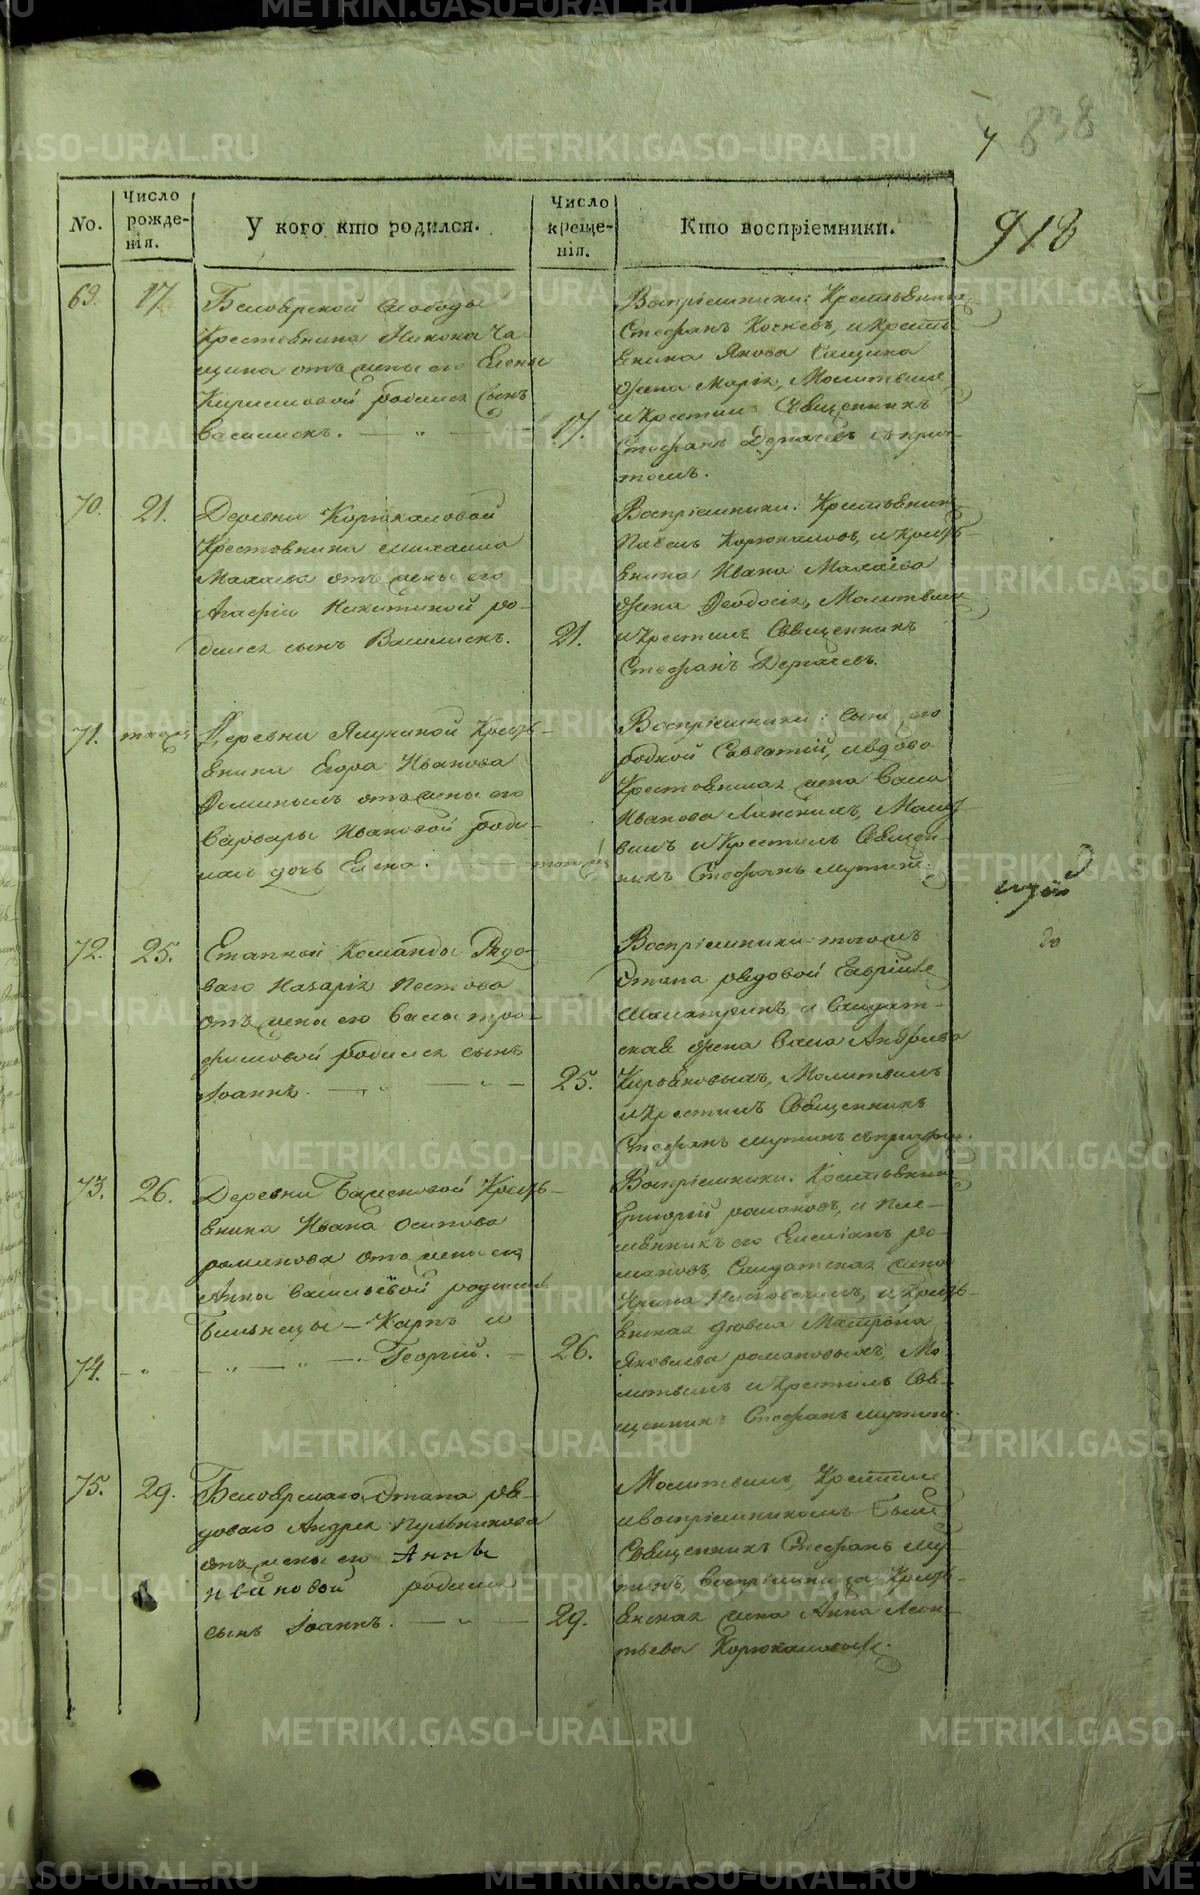 838
918
No.
Число рожденія.
У кого кто родился.
Число крещенія.
Кто воспріемники.
69. 17.
Белоярской Слободы
Крестьянина Никона Ча
щина отъ жены его Елены
Кириловой родился сынъ
Василискъ.
17.
Воспріемники: Крестьянинъ
Стефанъ Кочневъ, и Кресть
янина Якова Чащина
жена Марія, Молитвилъ
и Крестилъ Священникъ
Стефанъ Дергачевъ съ прич
томъ.
70. 21.
Деревни Корюкаловой
Крестьянина Михаила
Малаева отъ жены его
Агафіи Никитиной ро-
дился сынъ Василискъ.
21.
Воспріемники: Крестьянинъ
Павелъ Корюкаловъ, и Кресть-
янина Ивана Малаева
жена Феодосія, Молитвилъ
и Крестилъ Священникъ
Стефанъ Дергачевъ.
71.
Деревни Кресть-
янина Егора Иванова
отъ жены его
Варвары Ивановой роди-
лась дочь Елена.
Воспріемники: сынъ его
родной Савватій, и вдова
Крестьянская жена
Иванова Молит
вилъ и Крестилъ Священ-
никъ Стефанъ
72. 25.
Етапной Команды Рядо-
ваго Назарія Пестова
отъ жены его Васы Тро-
фимовой родился сынъ
Іоаннъ.
25.
Воспріемники: тогожъ
Этапа рядовой Гавріилъ
и Салдат-
ская жена Васа Андреева
Молитвилъ
и Крестилъ Священникъ
Стефанъ съ причтомъ.
73. 26.
Деревни Кресть-
янина Ивана Осипова
романова отъ жены его
Анны Васильевой родились
Близнецы - Карпъ и
74.
Георгій.
26.
Воспріемники: Крестьянинъ
Григорій романовъ, и пле-
мянникъ его Емеліанъ ро-
мановъ, Салдатская жена
Ирина и Кресть-
янская девка Матрона
Яковлева романовыхъ, Мо
литвилъ и Крестилъ Свя-
щенникъ Стефанъ
75. 29.
Белоярскаго Этапа ря-
доваго Андрея Пульникова
отъ жены его Анны
Ивановой родился
сынъ Іоаннъ.
29.
Молитвилъ, Крестилъ
и воспріемникомъ былъ
Священникъ Стефанъ
воспріемница Кресть-
янская жена Анна Леон-
тьева Корюкаловыхъ.
METRIKI.GASO-URAL.RU